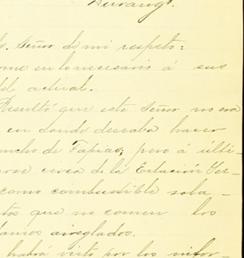 Durango.
Señor de mi respeto:
me en lo necesario á sus
del actual.
Resultó que este Señor no era
en donde deseaba hacer
rancho de Tapias, pero á últi-
cerca de la Estación Ter-
como combustible sola-
que no comen los
arreglados.
habrá visto por los infor-